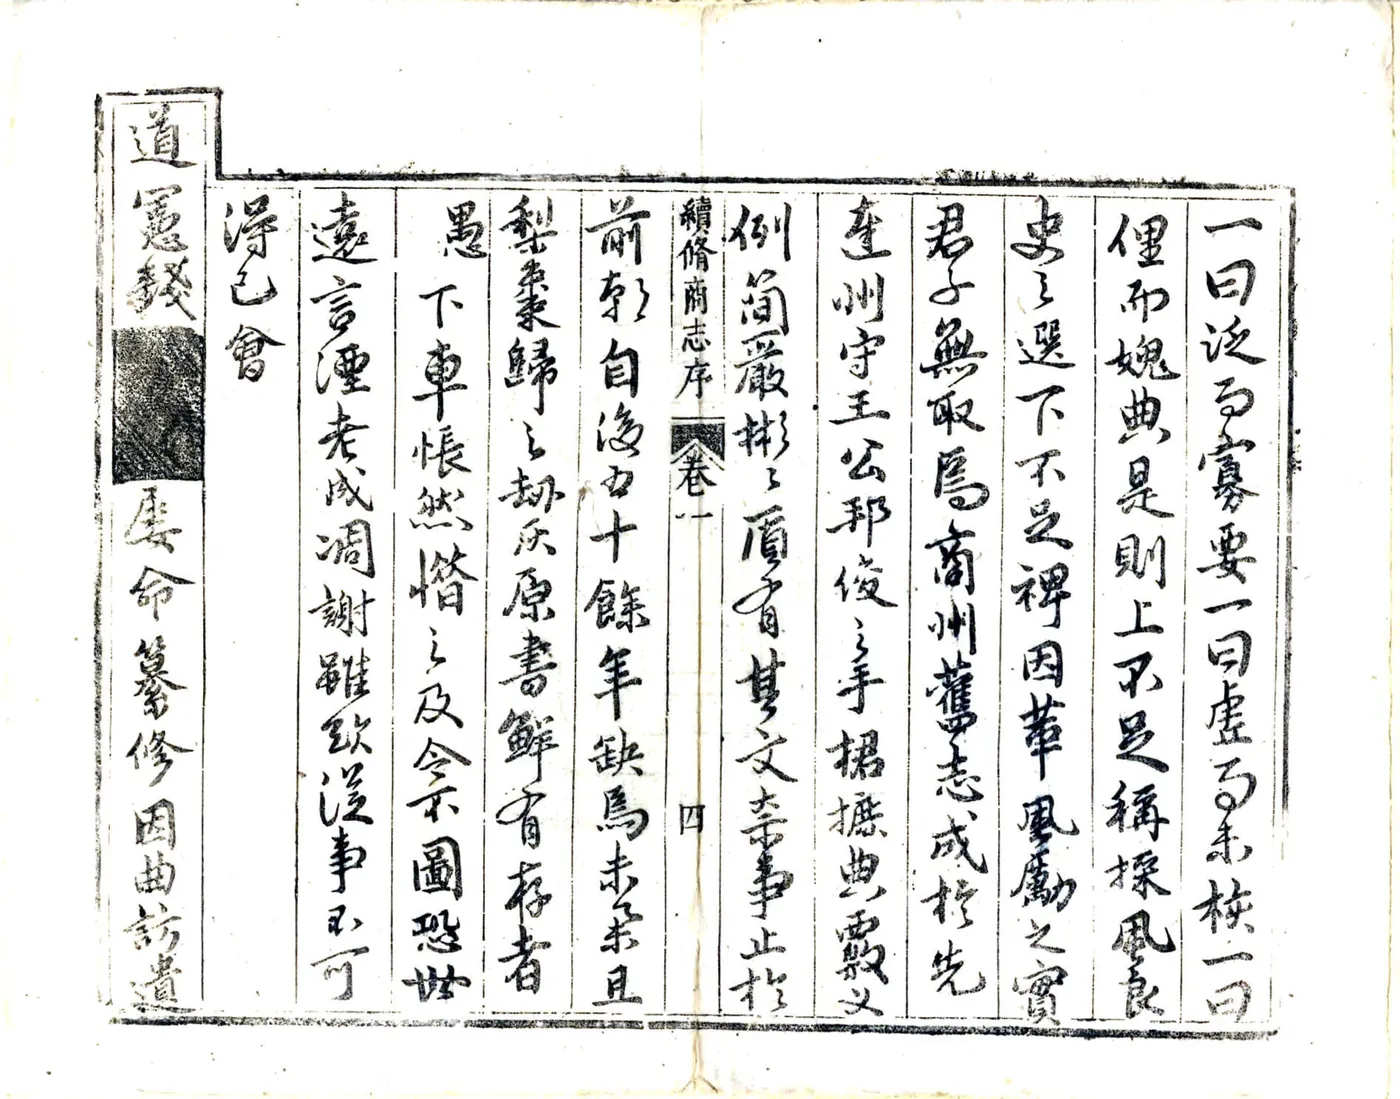 一曰泛而寡要一曰虛而未核一曰
俚而媿典是則上不足稱採風良
史之選下不足裨因革風勵之實
君子無取焉商州舊志成於先
達州守王公邦俊之手捃摭典覈义
例簡嚴彬々質有其文奈事止於
續脩商志序
卷一
四
前朝自後五十餘年缺焉未葺且
梨棗歸之劫灰原書鮮有存者
愚下車悵然惜之及今不圖恐世
遠言湮老成凋謝雖欲從事不可
得已會
道憲錢
屢命纂修因曲訪遺